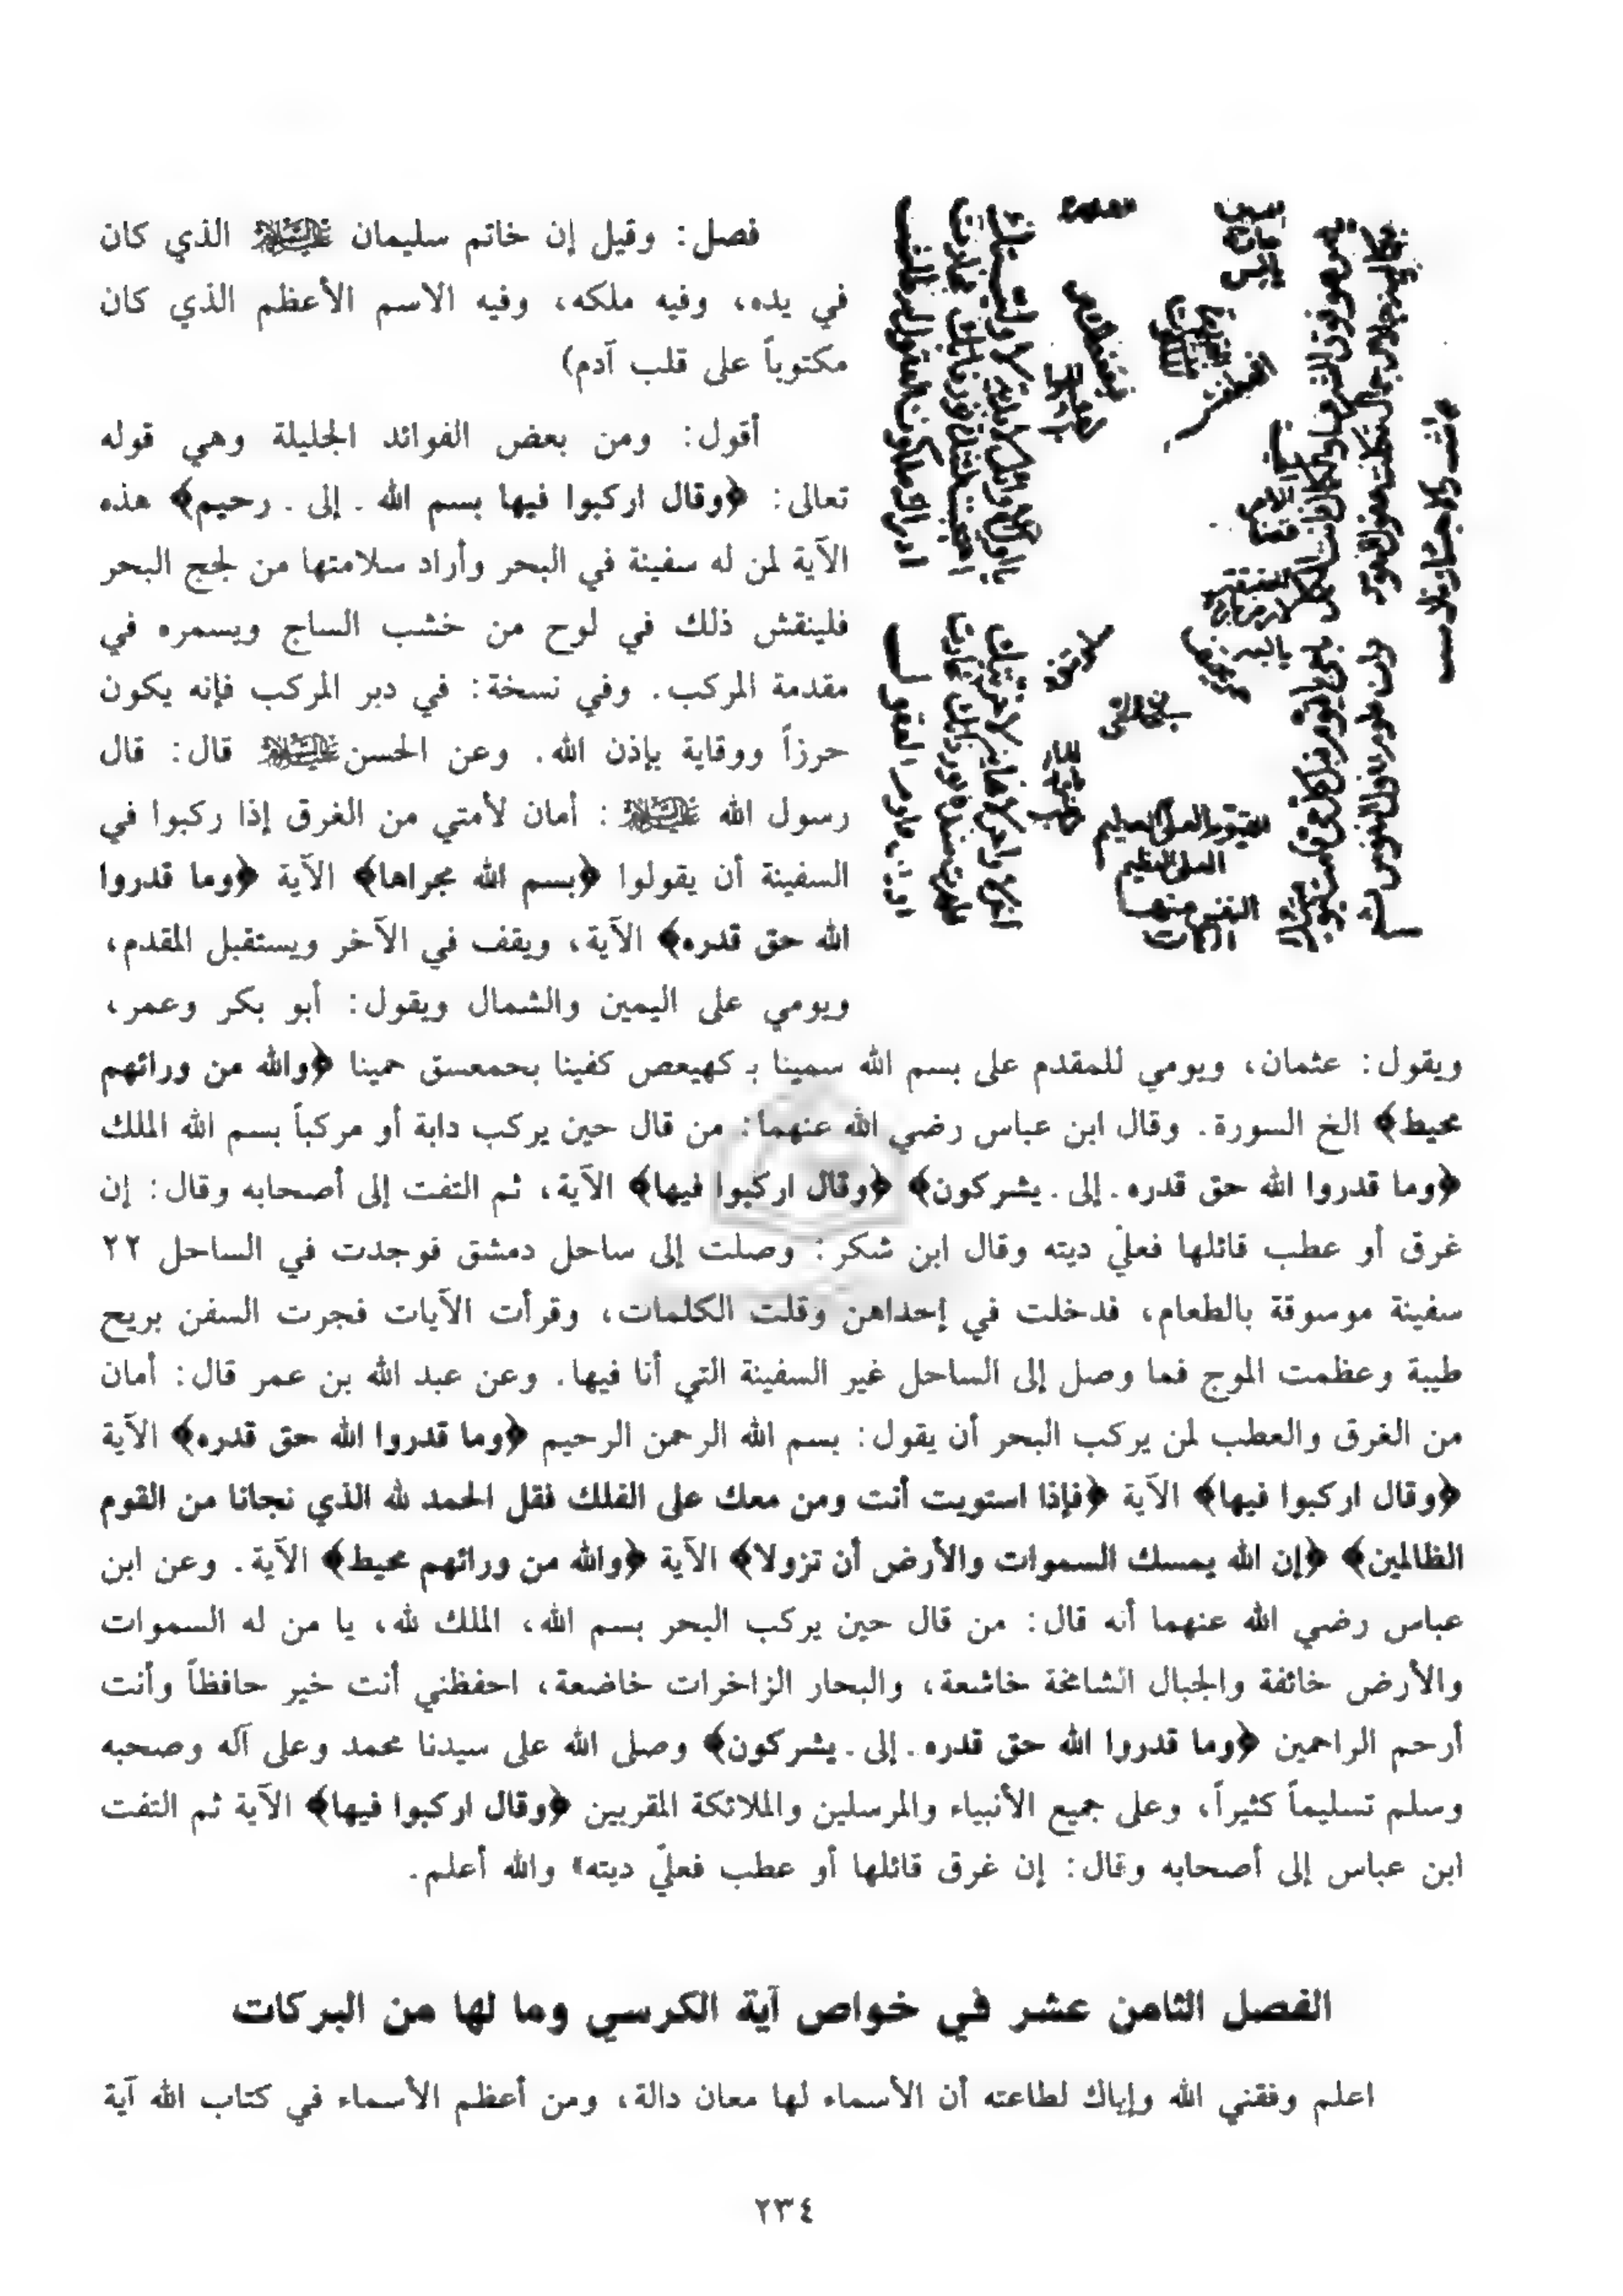 فصل: وقيل إن خاتم سليمان عليه السلام الذي كان
في يده، وفيه ملكه، وفيه الاسم الأعظم الذي كان
مكتوباً على قلب آدم)
أقول: ومن بعض الفوائد الجليلة وهي قوله
تعالى: ﴿وقال اركبوا فيها بسم الله . إلى . رحيم﴾ هذه
الآية لمن له سفينة في البحر وأراد سلامتها من لجج البحر
فلينقش ذلك في لوح من خشب الساج ويسمره في
مقدمة المركب. وفي نسخة: في دبر المركب فإنه يكون
حرزاً ووقاية بإذن الله. وعن الحسن عليه السلام قال: قال
رسول الله عليه السلام: أمان لأمتي من الغرق إذا ركبوا في
السفينة أن يقولوا ﴿بسم الله مجراها﴾ الآية ﴿وما قدروا
الله حق قدره﴾ الآية، ويقف في الآخر ويستقبل المقدم،
ويومي على اليمين والشمال ويقول: أبو بكر وعمر،
ويقول: عثمان، ويومي للمقدم على بسم الله سمينا بـ كهيعص كفينا بحمعسق حمينا ﴿والله من ورائهم
محيط﴾ الخ السورة. وقال ابن عباس رضي الله عنهما: من قال حين يركب دابة أو مركباً بسم الله الملك
﴿وما قدروا الله حق قدره . إلى . يشركون﴾ ﴿وقال اركبوا فيها﴾ الآية، ثم التفت إلى أصحابه وقال: إن
غرق أو عطب قائلها فعليّ ديته وقال ابن شكر: وصلت إلى ساحل دمشق فوجدت في الساحل ٢٢
سفينة موسوقة بالطعام، فدخلت في إحداهن وقلت الكلمات، وقرأت الآيات فجرت السفن بريح
طيبة وعظمت الموج فما وصل إلى الساحل غير السفينة التي أنا فيها. وعن عبد الله بن عمر قال: أمان
من الغرق والعطب لمن يركب البحر أن يقول: بسم الله الرحمن الرحيم ﴿وما قدروا الله حق قدره﴾ الآية
﴿وقال اركبوا فيها﴾ الآية ﴿فإذا استويت أنت ومن معك على الفلك فقل الحمد لله الذي نجانا من القوم
الظالمين﴾ ﴿إن الله يمسك السموات والأرض أن تزولا﴾ الآية ﴿والله من ورائهم محيط﴾ الآية. وعن ابن
عباس رضي الله عنهما أنه قال: من قال حين يركب البحر بسم الله، الملك لله، يا من له السموات
والأرض خائفة والجبال الشامخة خاشعة، والبحار الزاخرات خاضعة، احفظني أنت خير حافظاً وأنت
أرحم الراحمين ﴿وما قدروا الله حق قدره . إلى . يشركون﴾ وصلى الله على سيدنا محمد وعلى آله وصحبه
وسلم تسليماً كثيراً، وعلى جميع الأنبياء والمرسلين والملائكة المقربين ﴿وقال اركبوا فيها﴾ الآية ثم التفت
ابن عباس إلى أصحابه وقال: إن غرق قائلها أو عطب فعليّ ديته» والله أعلم.
الفصل الثامن عشر في خواص آية الكرسي وما لها من البركات
اعلم وفقني الله وإياك لطاعته أن الأسماء لها معان دالة، ومن أعظم الأسماء في كتاب الله آية
٢٣٤